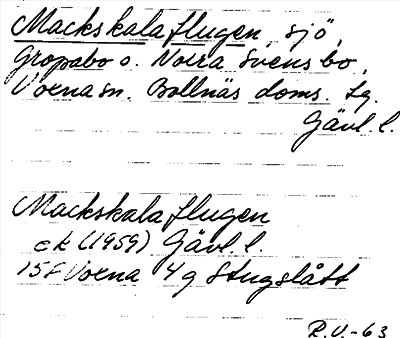 Mackskalaflugen, sjö,
Gropabo o. Norra Svensbo,
Voxna sn. Bollnäs doms. Lg.
Gävl. l.
Mackskalaflugen
ek (1959) Gävl. l.
15F Voxna 4g Stugslått
R.V.-63